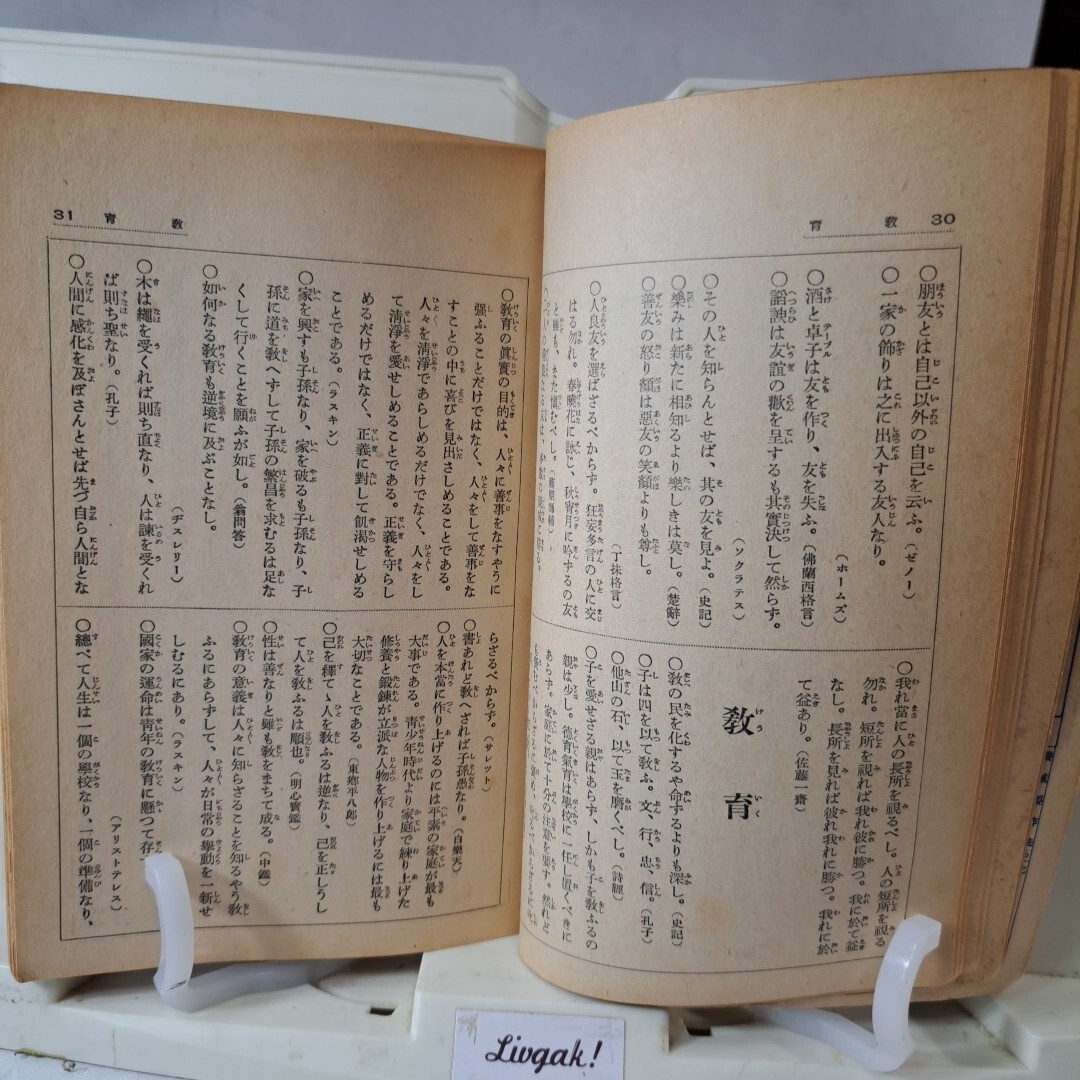 30 教育
○朋友とは自己以外の自己を云ふ。(ゼノー)
○一家の飾りは之に出入する友人なり。
(ホームズ)
○酒と卓子は友を作り、友を失ふ。(佛蘭西格言)
○諂諛は友誼の歡を呈するも其實決して然らず。
(ソクラテス)
○その人を知らんとせば、其の友を見よ。(史記)
○樂みは新たに相知るより樂しきは莫し。(楚辭)
○善友の怒り顏は惡友の笑顏よりも尊し。
(丁抹格言)
○人良友を選ばざるべからず。狂妄多言の人に交
はる勿れ。春曉花に詠じ、秋宵月に吟ずるの友
と雖も、また愼むべし。
○我れ當に人の長所を視るべし。人の短所を視る
勿れ。短所を視れば我れ彼に勝つ。我に於て益
なし。長所を見れば彼れ我れに勝つ。我れに於
て益あり。(佐藤一齋)
教育
○敎の民を化するや命するよりも深し。(史記)
○子は四を以て敎ふ。文、行、忠、信。(孔子)
○他山の石、以て玉を磨くべし。(詩經)
○子を愛せざる親はあらず、しかも子を敎ふるの
親は少し。德育氣育は學校に一任し置くべきに
あらず。家庭に於て十分の注意を要す。然れど
31 教育
○敎育の眞實の目的は、人々に善事をなすやうに
强ふることだけではなく、人々をして善事をな
すことの中に喜びを見出さしめることである。
人々を淸淨であらしめるだけでなく、人々をし
て淸淨を愛せしめることである。正義を守らし
めるだけではなく、正義に對して飢渴せしめる
ことである。(ラスキン)
○家を興すも子孫なり、家を破るも子孫なり、子
孫に道を敎へずして子孫の繁昌を求むるは足な
くして行くことを願ふが如し。(翁問答)
○如何なる敎育も逆境に及ぶことなし。
(ヂスレリー)
○木は繩を受くれば則ち直なり、人は諫を受くれ
ば則ち聖なり。(孔子)
○人間に感化を及ぼさんとせば先づ自ら人間とな
らざるべからず。(サレツト)
○書あれど敎へざれば子孫愚なり。(白樂天)
○人を本當に作り上げるのには平素の家庭が最も
大事である。靑少年時代より家庭で練り上げた
修養と鍛鍊が立派な人物を作り上げるには最も
大切なことである。(東鄕平八郎)
○己を釋て人を敎ふるは逆なり、己を正しうし
て人を敎ふるは順也。(明心寶鑑)
○性は善なりと雖も敎をまちて成る。(申鑑)
○敎育の意義は人々に知らざることを知るやう敎
ふるにあらずして、人々が日常の擧動を一新せ
しむるにあり。(ラスキン)
○國家の運命は靑年の敎育に懸つて存
(アリストテレス)
○總べて人生は一個の學校なり、一個の準備なり、
Livgak!